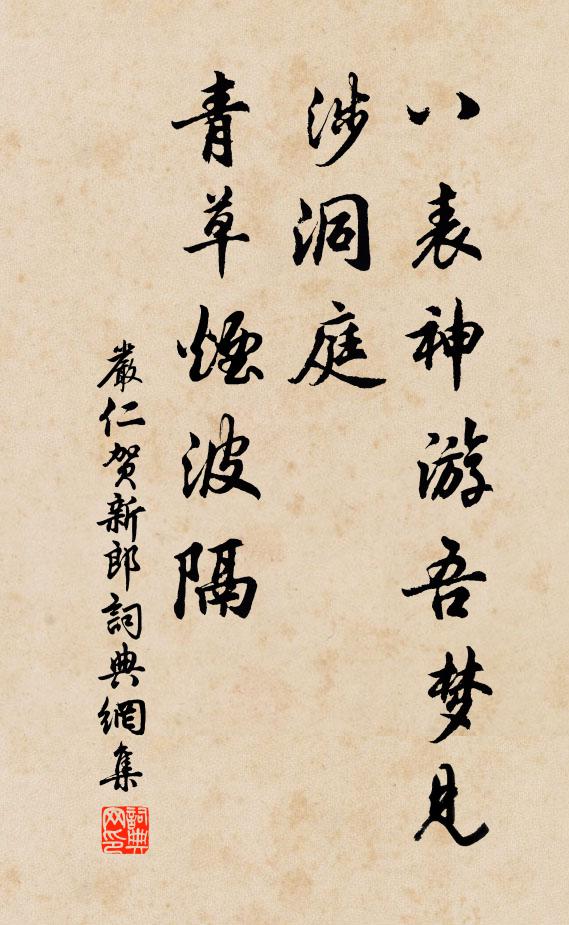 八表神游吾梦见
涉洞庭
青草煙波隔
嚴仁贺新郎詞典網集
詞典网印